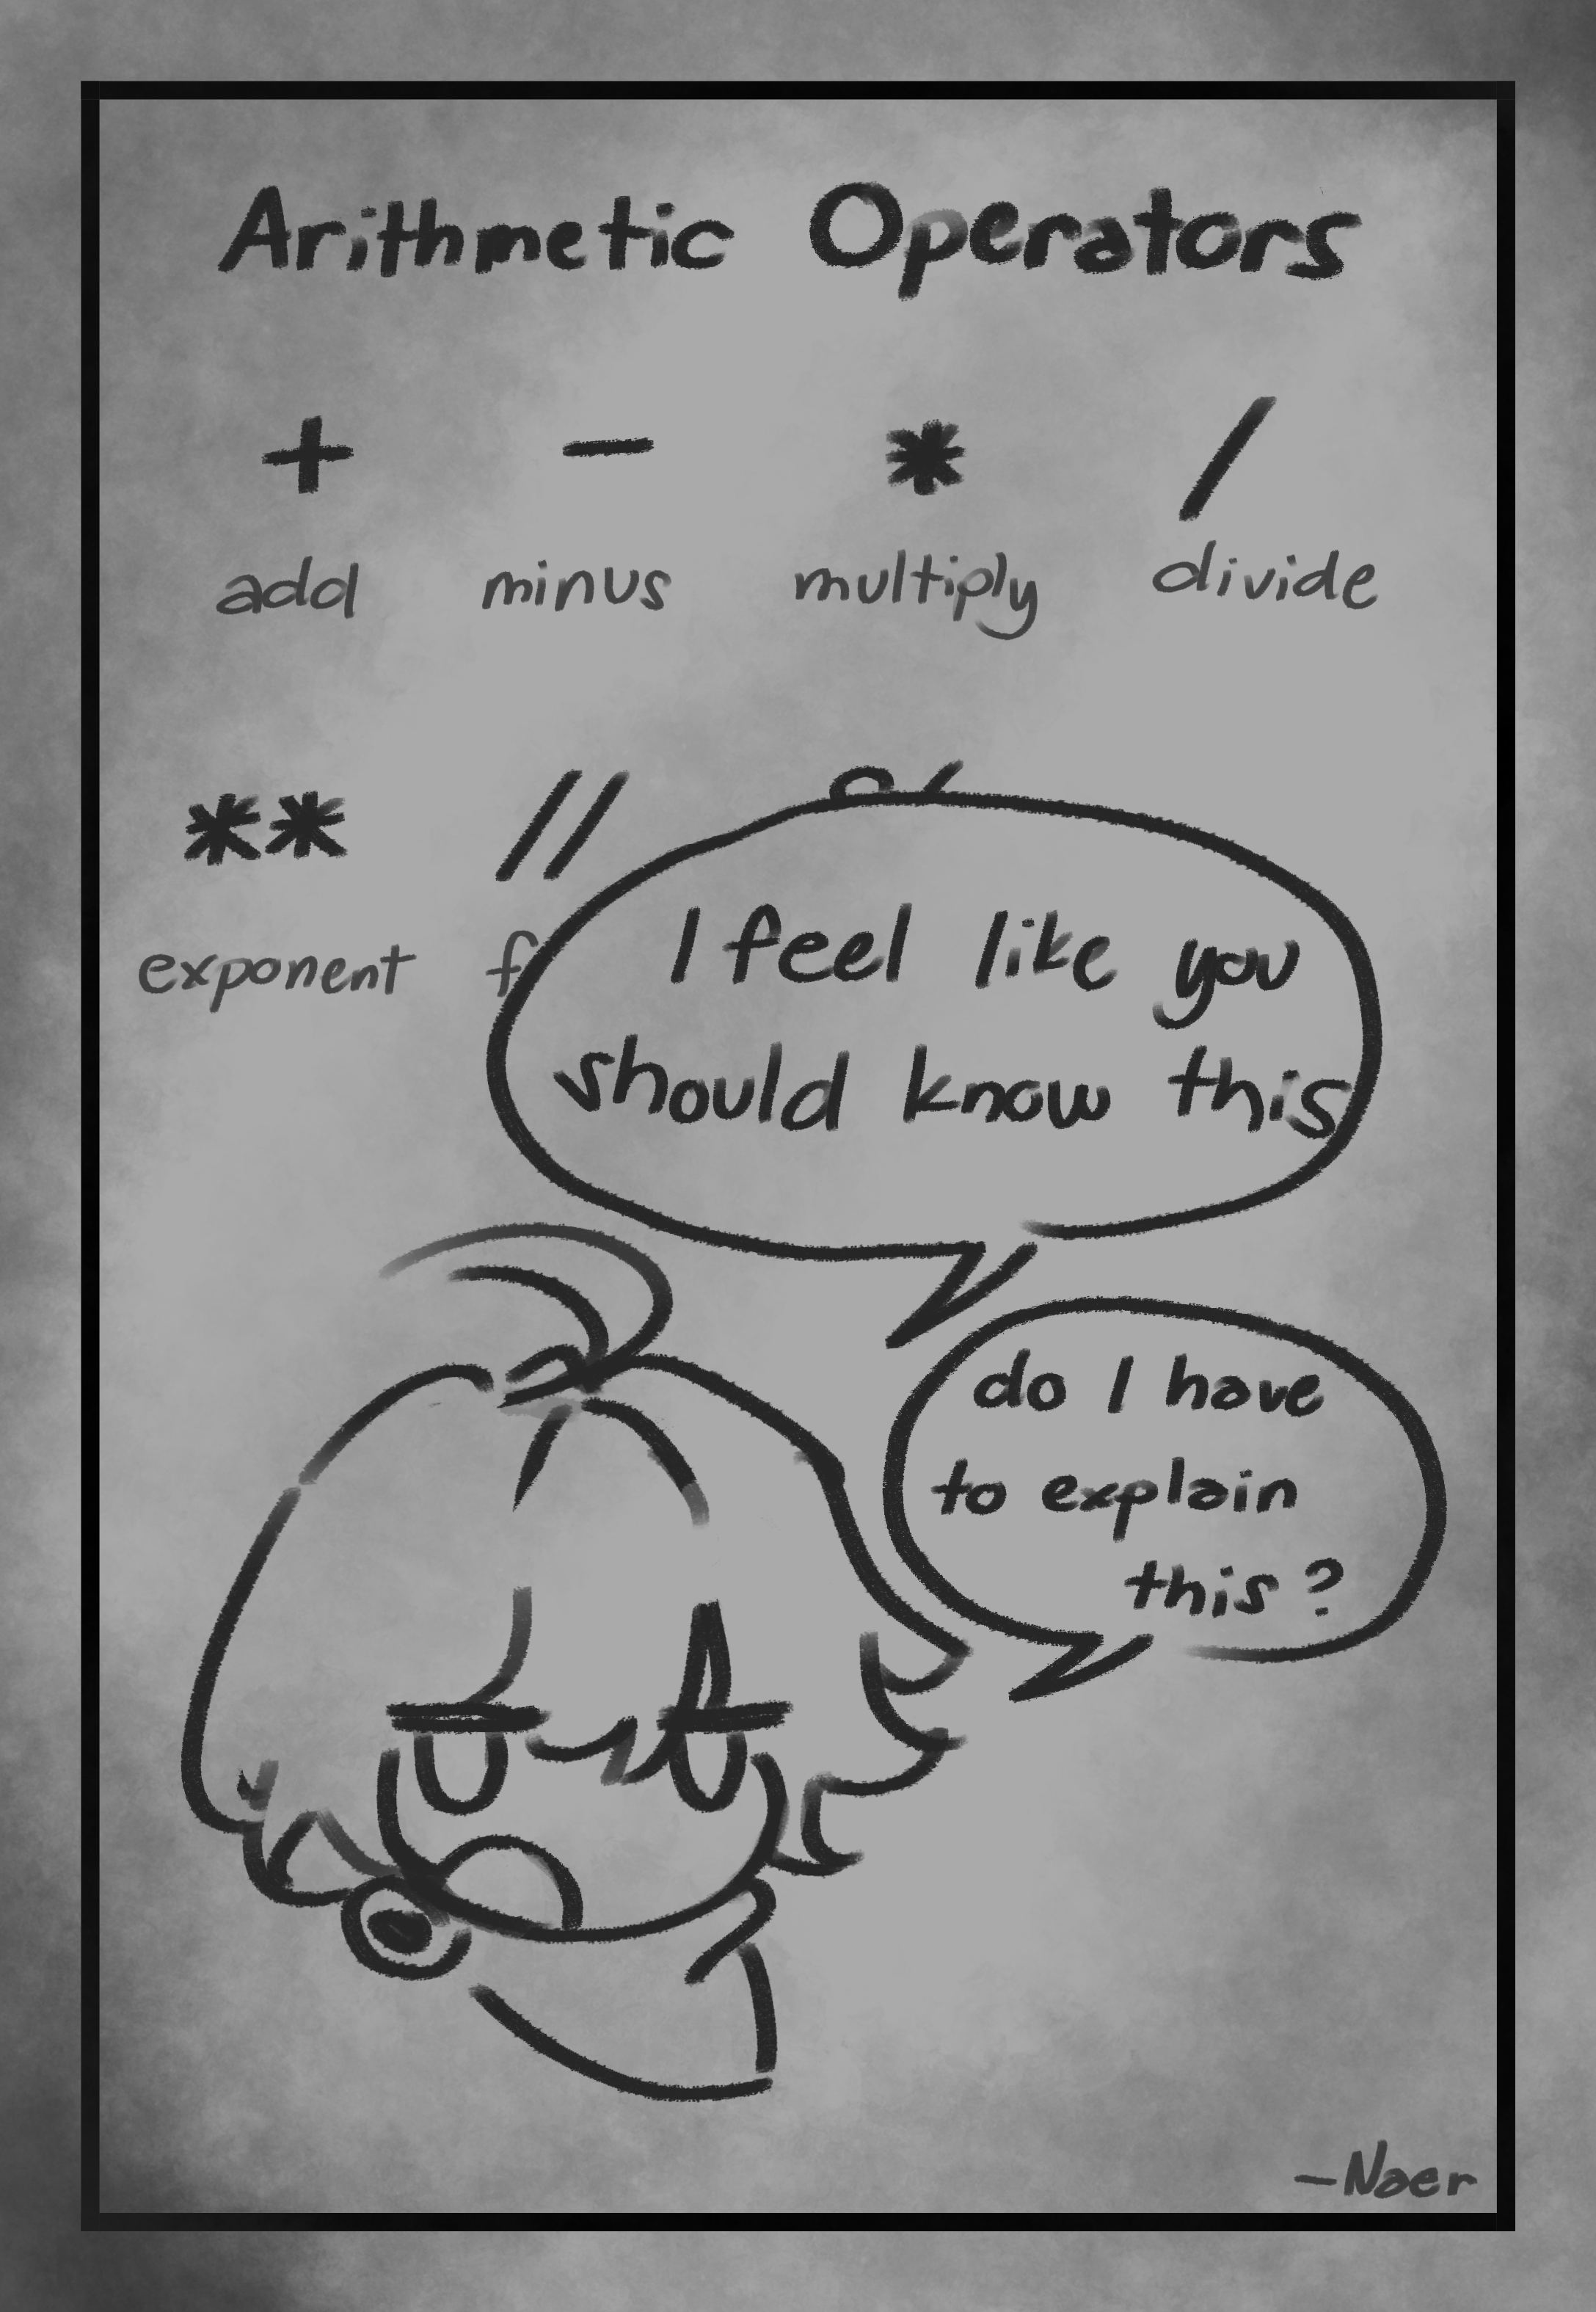 Arithmetic Operators
+ - * /
add minus multiply divide
** //
exponent f
I feel like you
should know this
do I have
to explain
this?
-Naer